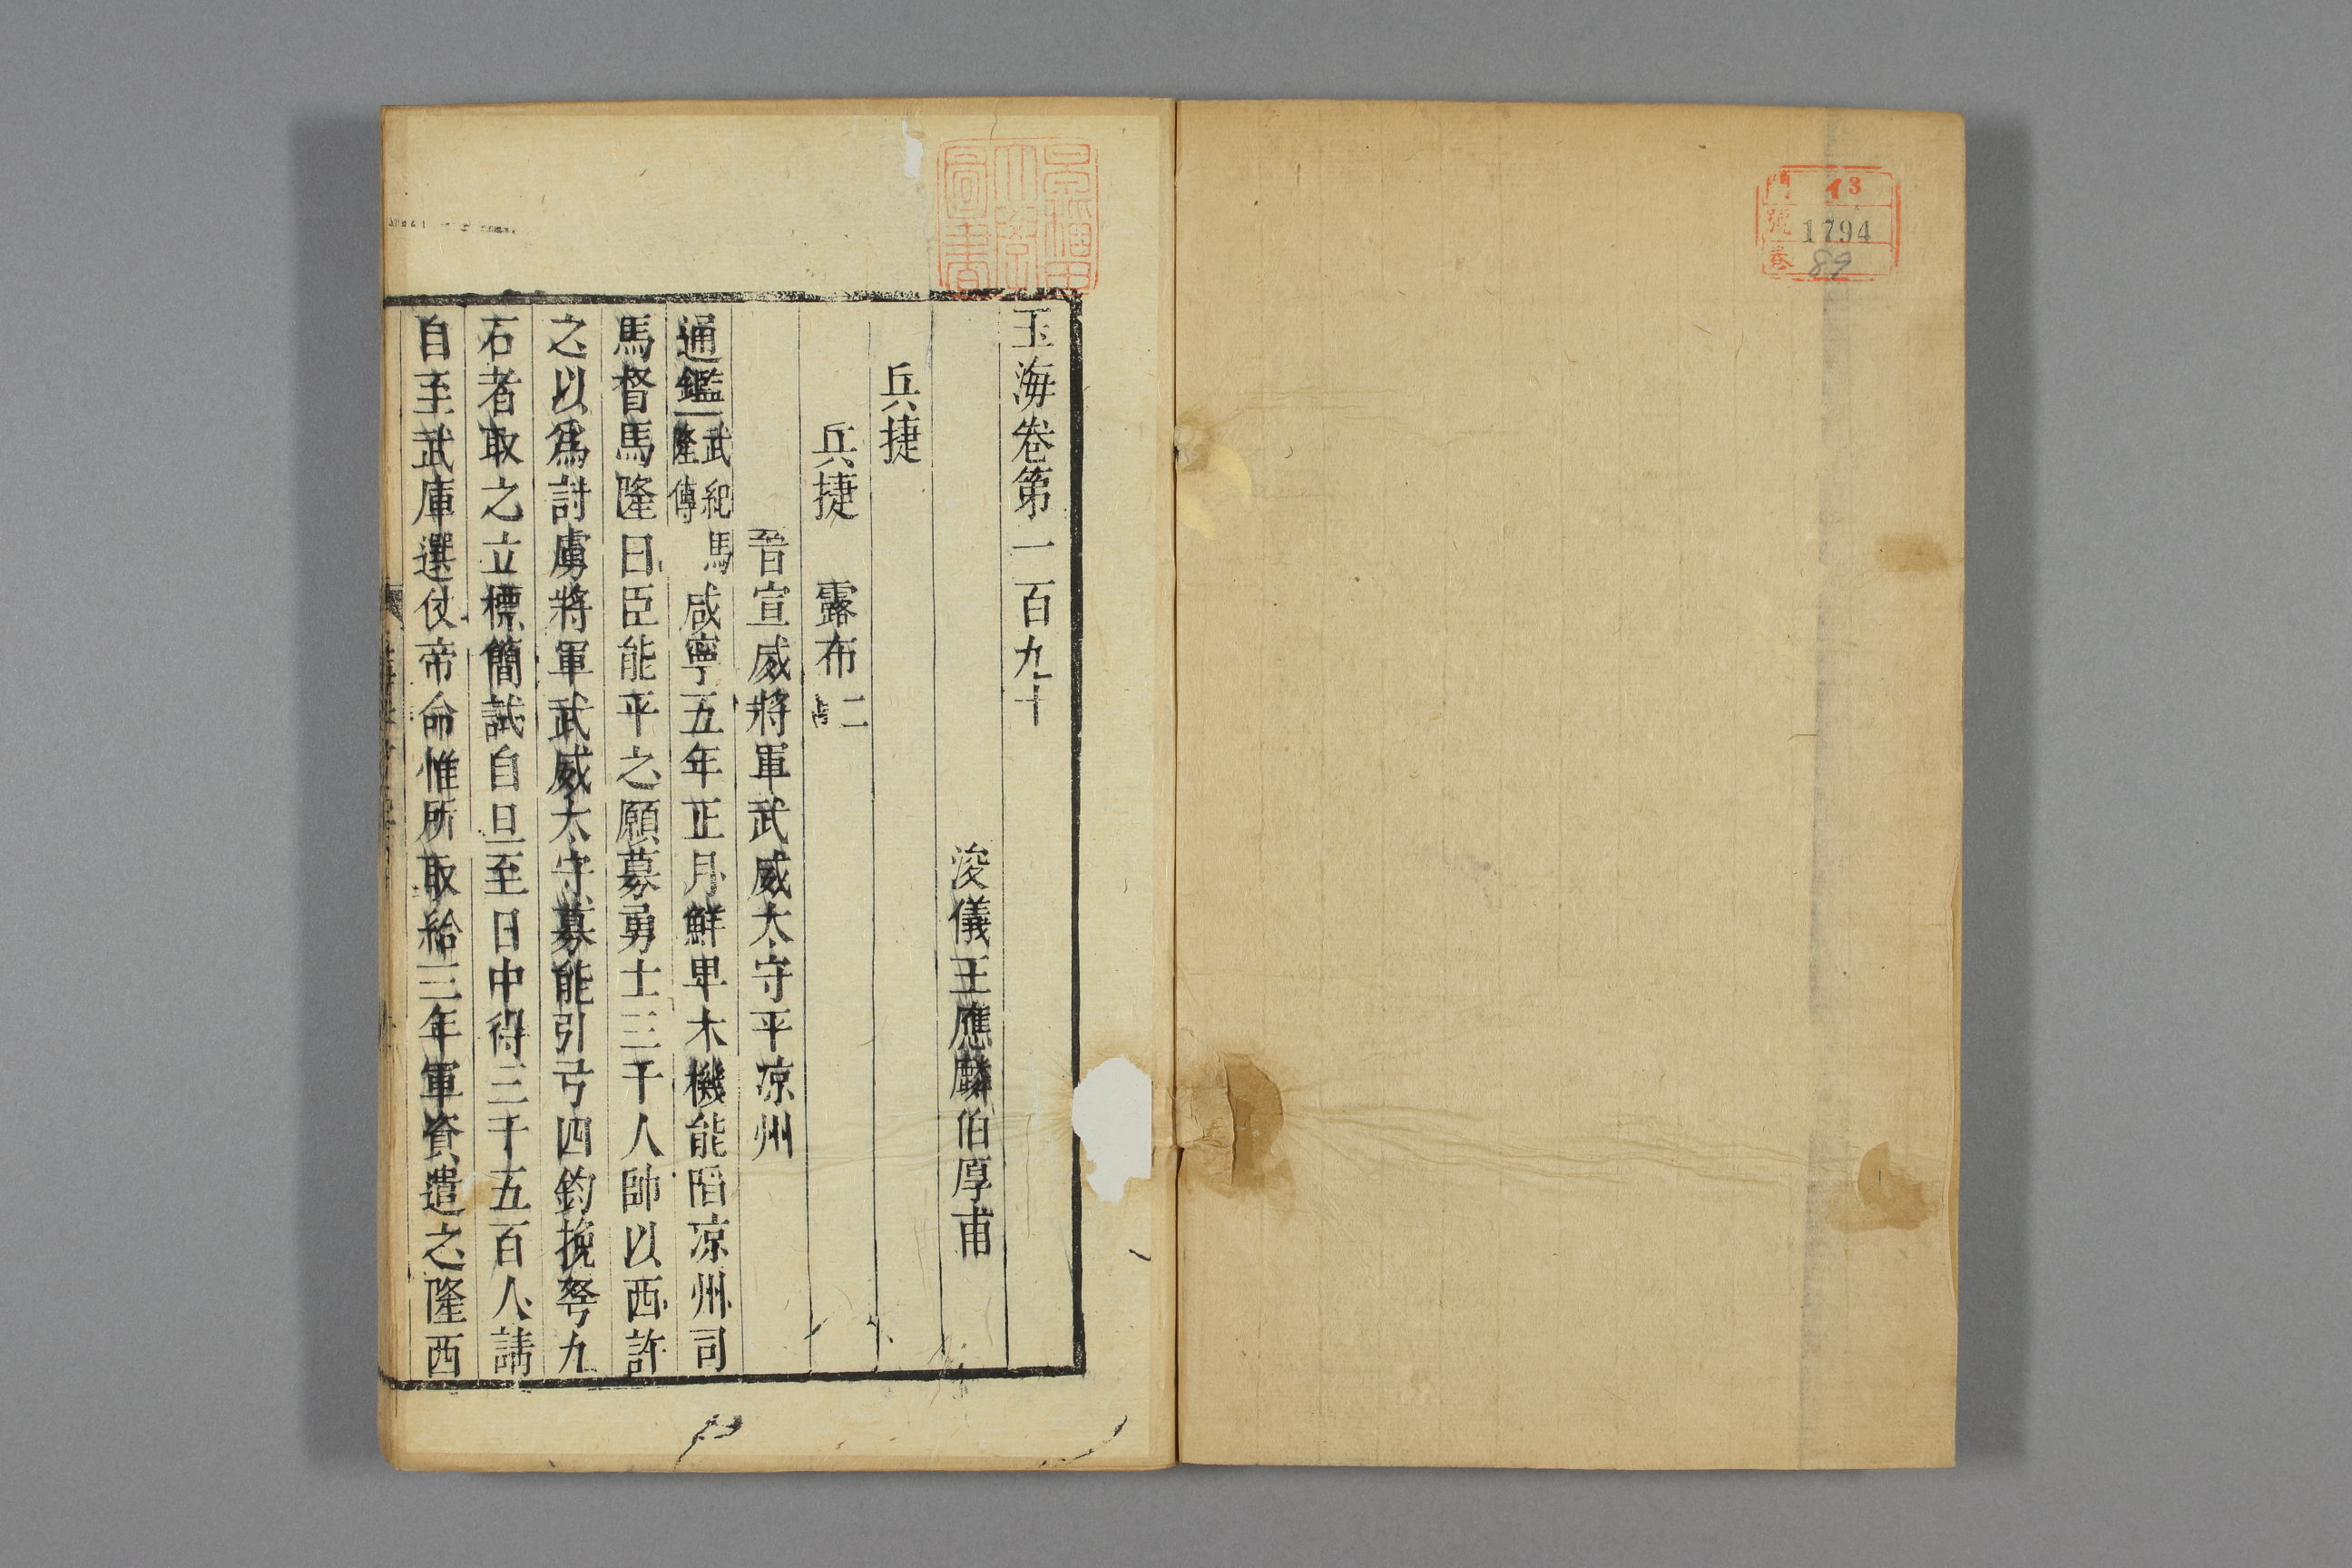 門 13
號 1794
卷 89
早稲田大學圖書
玉海卷第一百九十
浚儀王應麟伯厚甫
兵捷
兵捷 露布二
晉宣威將軍武威太守平凉州
通鑑武紀馬隆傳咸寧五年正月鮮卑木機能陷凉州司
馬督馬隆曰臣能平之願募勇士三千人帥以西許
之以爲討虜將軍武威太守募能引弓四鈞挽弩九
石者取之立標簡試自旦至日中得三千五百人請
自至武庫選仗帝命惟所取給三年軍資遣之隆西